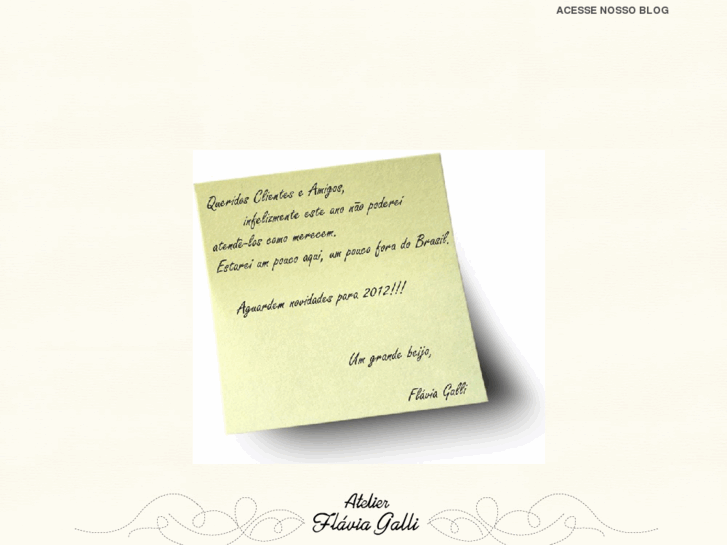 ACESSE NOSSO BLOG
Queridos Clientes e Amigos,
infelizmente este ano não poderei
atende-los como merecem.
Estarei um pouco aqui, um pouco fora do Brasil.
Aguardem novidades para 2012!!!
Um grande beijo,
Flávia Galli
Atelier
Flávia Galli